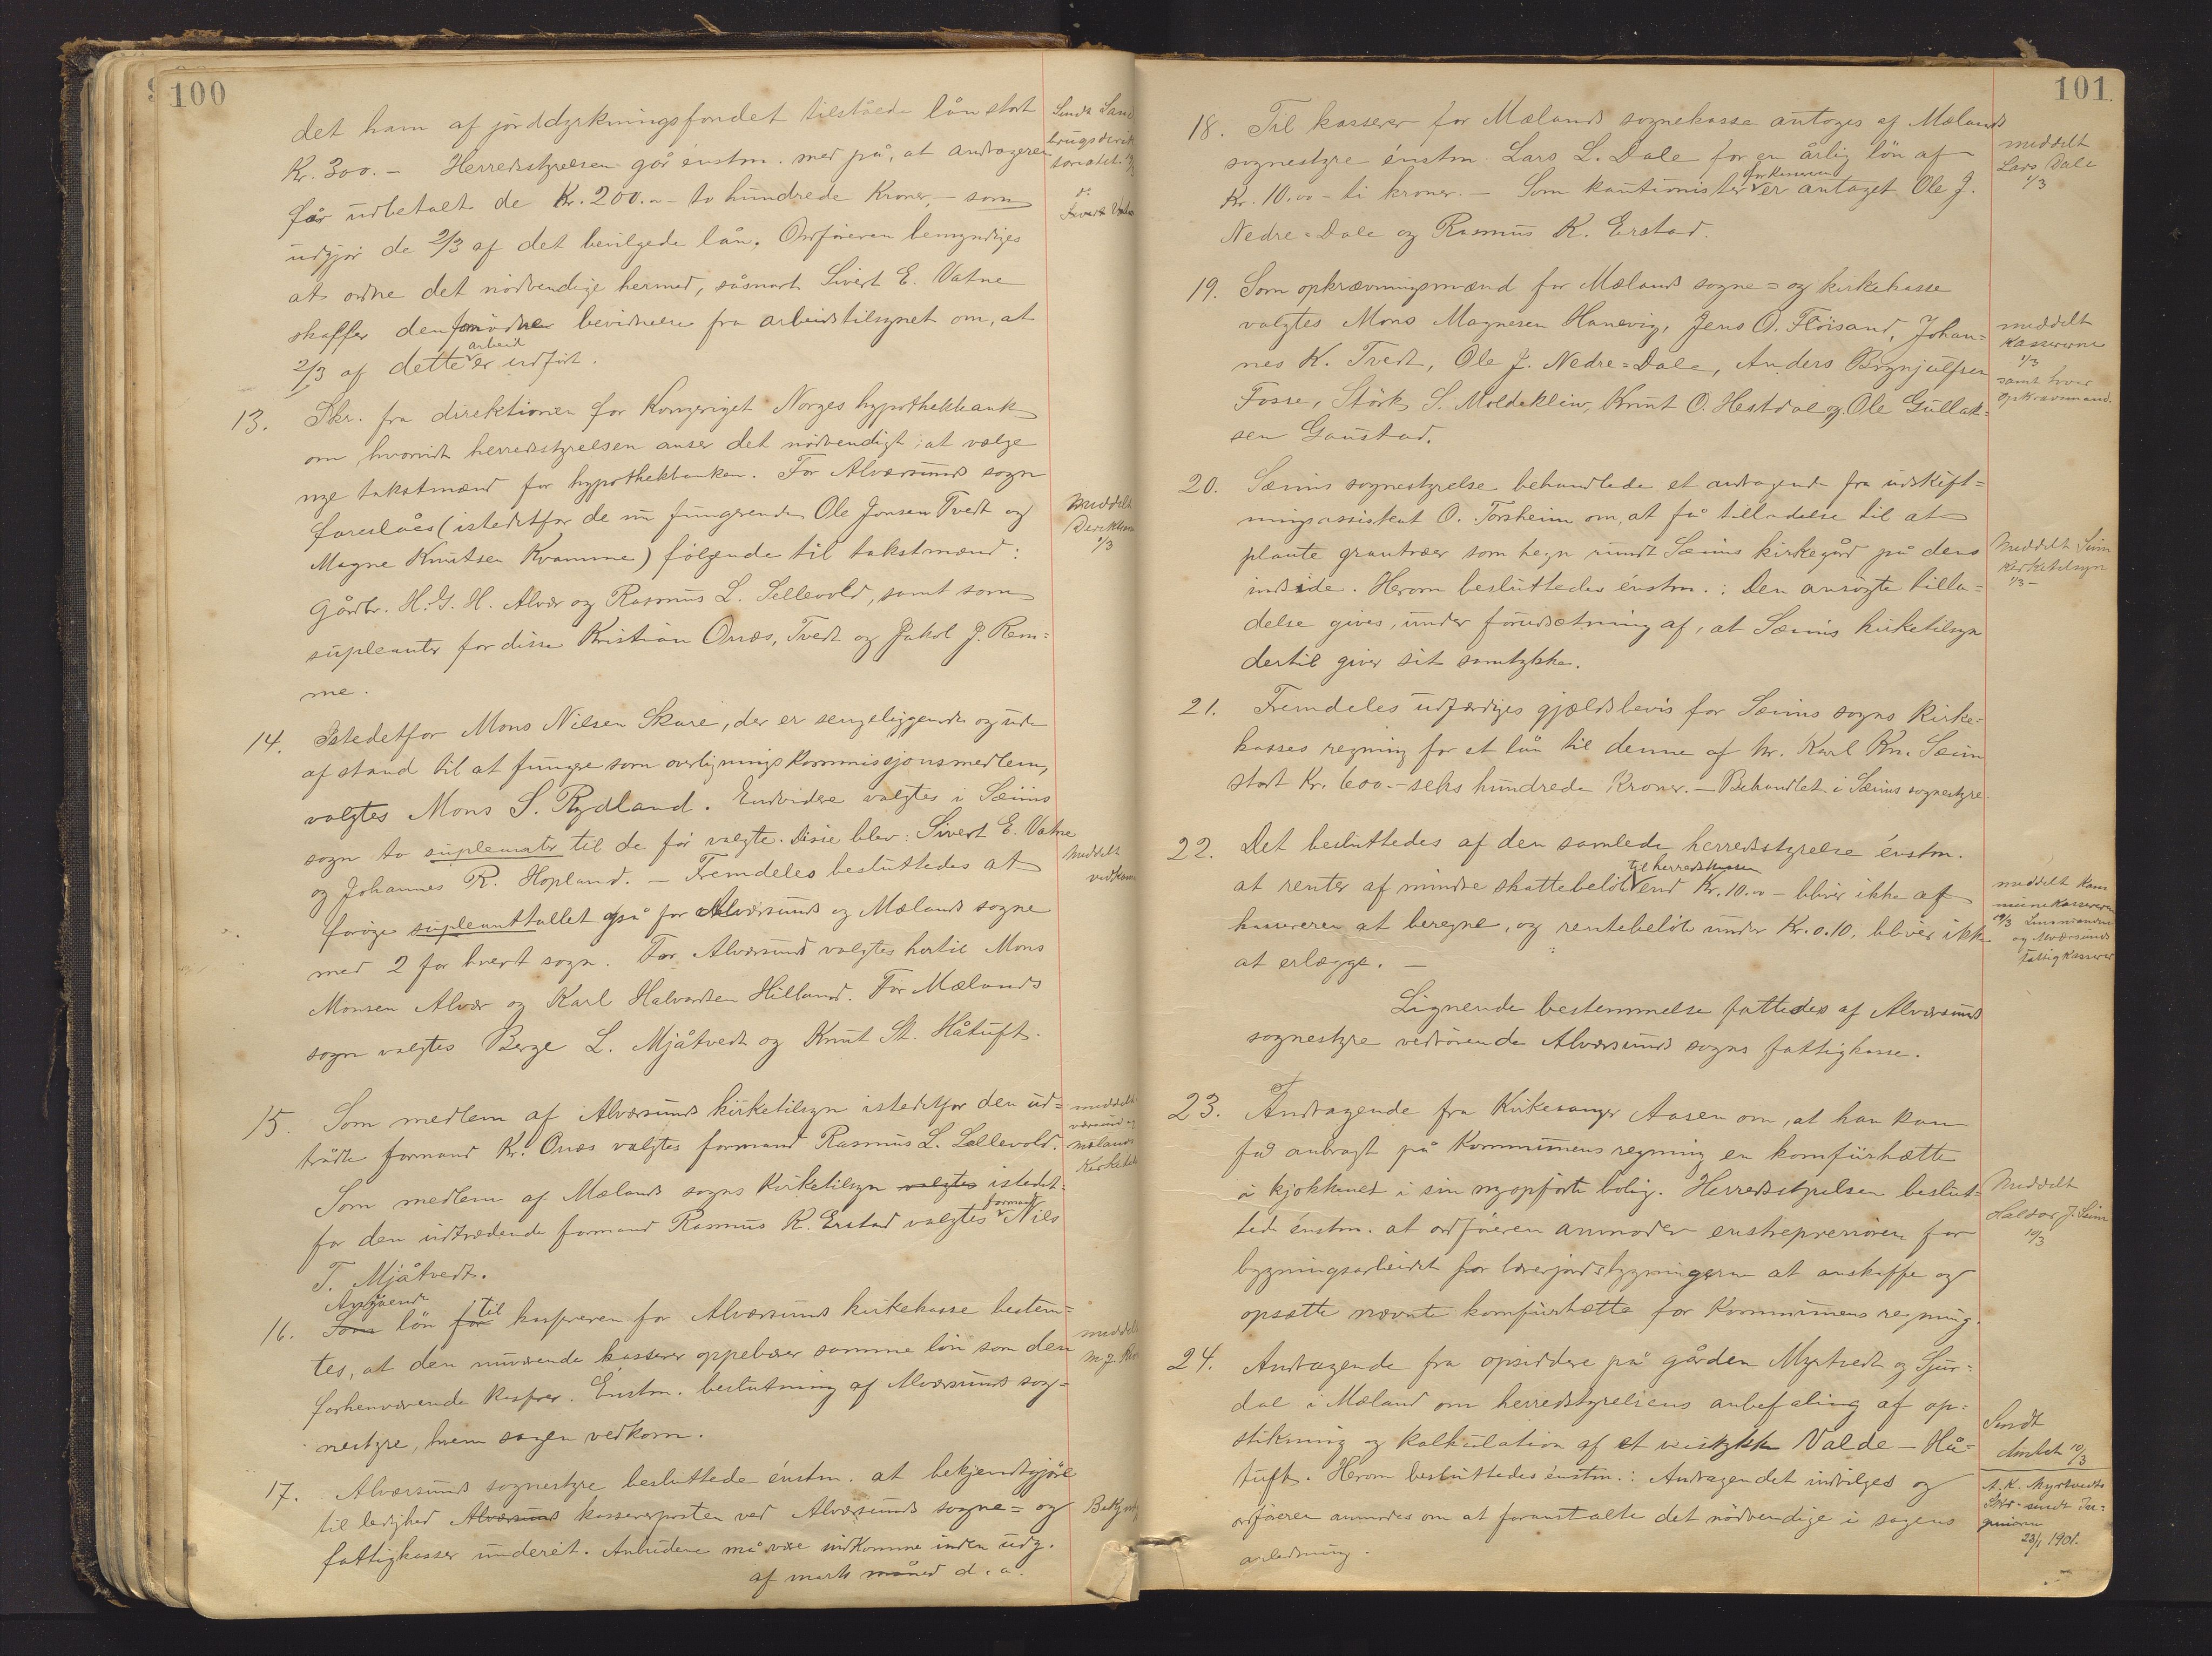 100
det ham af jorddyrkningsfondet tilståede lån stort
Kr. 300.- Herredsstyrelsen går énstm. med på, at andrageren
får udbetalt de Kr. 200.00 - to hundrede Kroner, - som
udgjør de 2/3 af det bevilgede lån. Ordføreren bemyndiges
at ordne det nødvendige hermed, såsnart Sivert E. Vatne
skaffer den fornødne bevidnelse fra arbeidstilsynet om, at
2/3 af dette arbeid er udført.
13. Skr. fra direktionen for Kongeriget Norges hypothekbank
om hvorvidt herredsstyrelsen anser det nødvendigt at vælge
nye takstmænd for hypothekbanken. For Alværsunds sogn
foreslåes (istedetfor de nu fungerende Ole Jonsen Tvedt og
Magne Knutsen Kvamme) følgende til takstmænd:
Gårdbr. H. G. H. Alvær og Rasmus L. Sellevold, samt som
supleanter for disse Kristian Onæs, Tvedt og Jakob J. Rem=
me.
14. Istedetfor Mons Nilsen Skare, der er sengeliggende og ude
af stand til at fungere som overligningskommissjonsmedlem,
valgtes Mons S. Rydland. Endvidere valgtes i Sæims
sogn to supleanter til de før valgte. Disse blev: Sivert E. Vatne
og Johannes R. Hopland. - Fremdeles besluttedes at
forøge supleanttallet også for Alværsunds og Mælands sogne
med 2 for hvert sogn. For Alværsund valgtes hertil Mons
Monsen Alvær og Karl Halvardsen Hilland. For Mælands
sogn valgtes Berge L. Mjåtvedt og Knut St. Håtuft.
15. Som medlem af Alværsunds kirketilsyn istedetfor den ud=
trådte formand Kr. Onæs valgtes formand Rasmus L. Sellevold.
Som medlem af Mælands sogns Kirketilsyn valgtes istedet=
for den udtrædende formand Rasmus K. Erstad valgtes formand Nils
T. Mjåtvedt.
16. Som Angående løn for til kassereren for Alværsunds kirkekasse bestem=
tes, at den nuværende kasserer oppebær samme løn som den
forhenværende kasserer. Énstm. beslutning af Alværsunds sog=
nestyre, hvem sagen vedkom.
17. Alværsunds sognestyre besluttede énstm. at bekjendtgjøre
til ledighed Alværsund kassererposten ved Alværsunds sogne= og
fattigkasser underét. Anbudene må være indkomne inden udg.
af marts måned d. a.
Sendt Land
brugsdirek
toratet
Meddelt
Direktion
1/3
Meddelt
vedkom
meddelt
Mælands
Kirketil
meddelt
Bekjentg
101
18. Til kasserer for Mælands sognekasse antoges af Mælands
sognestyre énstm. Lars L. Dale for en årlig løn af
Kr. 10.00 - ti kroner. - Som kautionister for kassereren er antaget Ole J.
Nedre=Dale og Rasmus K. Erstad.
19. Som opkrævningsmænd for Mælands sogne= og kirkekasse
valgtes Mons Magnesen Hanevig, Jens O. Fløisand, Johan=
nes K. Tvedt, Ole J. Nedre=Dale, Anders Brynjulfsen
Fosse, Størk S. Moldeklev, Knut O. Hestdal og Ole Gullak=
sen Gaustad.
20. Sæims sognestyrelse behandlede et andragende fra udskift=
ningsassistent O. Torsheim om, at få tilladelse til at
plante grantræer som hegn rundt Sæims kirkegård på dens
indside. Herom besluttedes énstm.: Den ansøgte tilla=
delse gives, under forudsætning af, at Sæims kirketilsyn
dertil giver sit samtykke.
21. Fremdeles udfærdiges gjældsbevis for Sæims sogns Kirke=
kasses regning for et lån til denne af hr. Karl Kn. Sæim
stort Kr. 600.- seks hundrede Kroner. - Behandlet i Sæims sognestyre.
22. Det besluttedes af den samlede herredsstyrelse énstm.
at renter af mindre skattebeløb til herredskassen end Kr. 10.00 - bliver ikke af
kassereren at beregne, og rentebeløb under Kr. 0.10. bliver ikke
at erlægge. -
Lignende bestemmelse fattedes af Alværsunds
sognestyre vedrørende Alværsunds sogns fattigkasse.
23. Andragende fra Kirkesanger Aasen om, at han kan
få anbragt på Kommunens regning en komfürhætte
i kjøkkenet i sin nyopførte bolig. Herredsstyrelsen beslut=
tede énstm. at ordføreren anmoder enstreprenøren for
bygningsarbeidet for lærerjordsbygningerne at anskaffe og
opsætte nævnte komfürhætte for Kommunens regning.
24. Andragende fra opsiddere på gården Myrtvedt og Sjur=
dal i Mæland om herredsstyrelsens anbefaling af op=
stikning og kalkulation af et veistykke Valde - Hå=
tuft. Herom besluttedes énstm.: Andragendet indvilges og
ordføreren anmodes om at foranstalte det nødvendige i sagens
anledning.
meddelt
Lars Dale
1/3
meddelt
Kassererne
1/3
samt hver
opkrævmand.
Meddelt Seim
Kirketilsyn
1/3 -
meddelt Kom
munekassereren
10/3 Lensmanden
og Alværsunds
fattigkasserer
Meddelt
Haldor J. Seim
10/3
Sendt
Amtet 10/3
A. K. Myrtvedts
Skr. sendt In=
geniøren
23/1 1901.